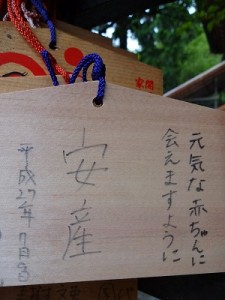 元気な赤ちゃんに
会えますように
安産
平成27年7月吉日
家開